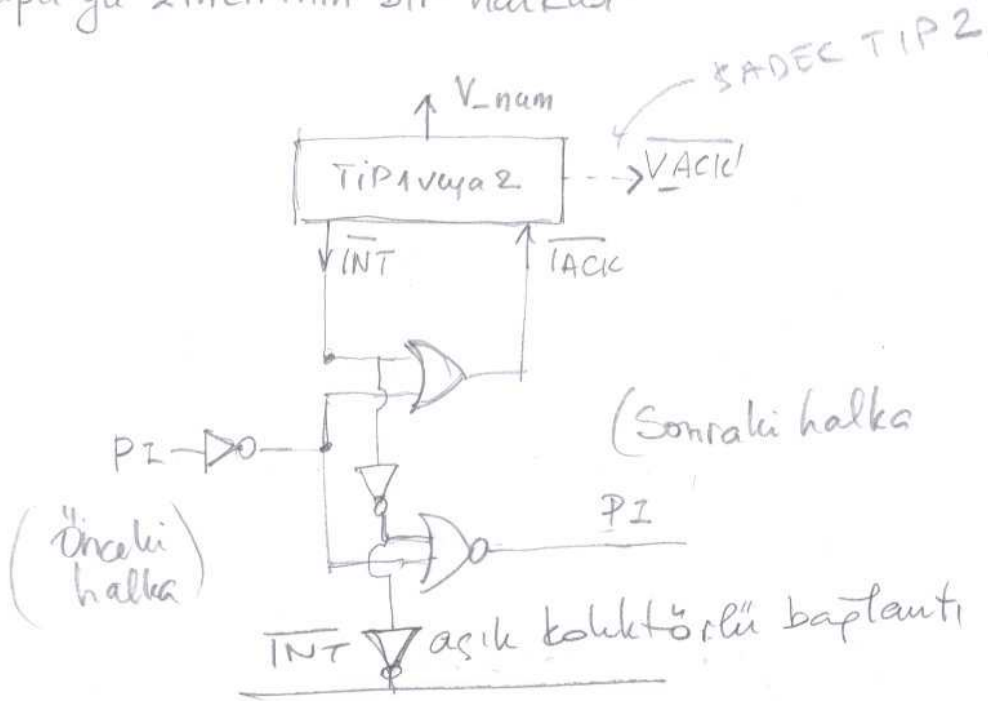 zincirinin bir halkası
SADEC TIP 2
V_num
TİP 1 veya 2
V_ACK'
INT
IACK
(Sonraki halka
PI
PI
(Önceki
halka)
INT açık kolektörlü bağlantı